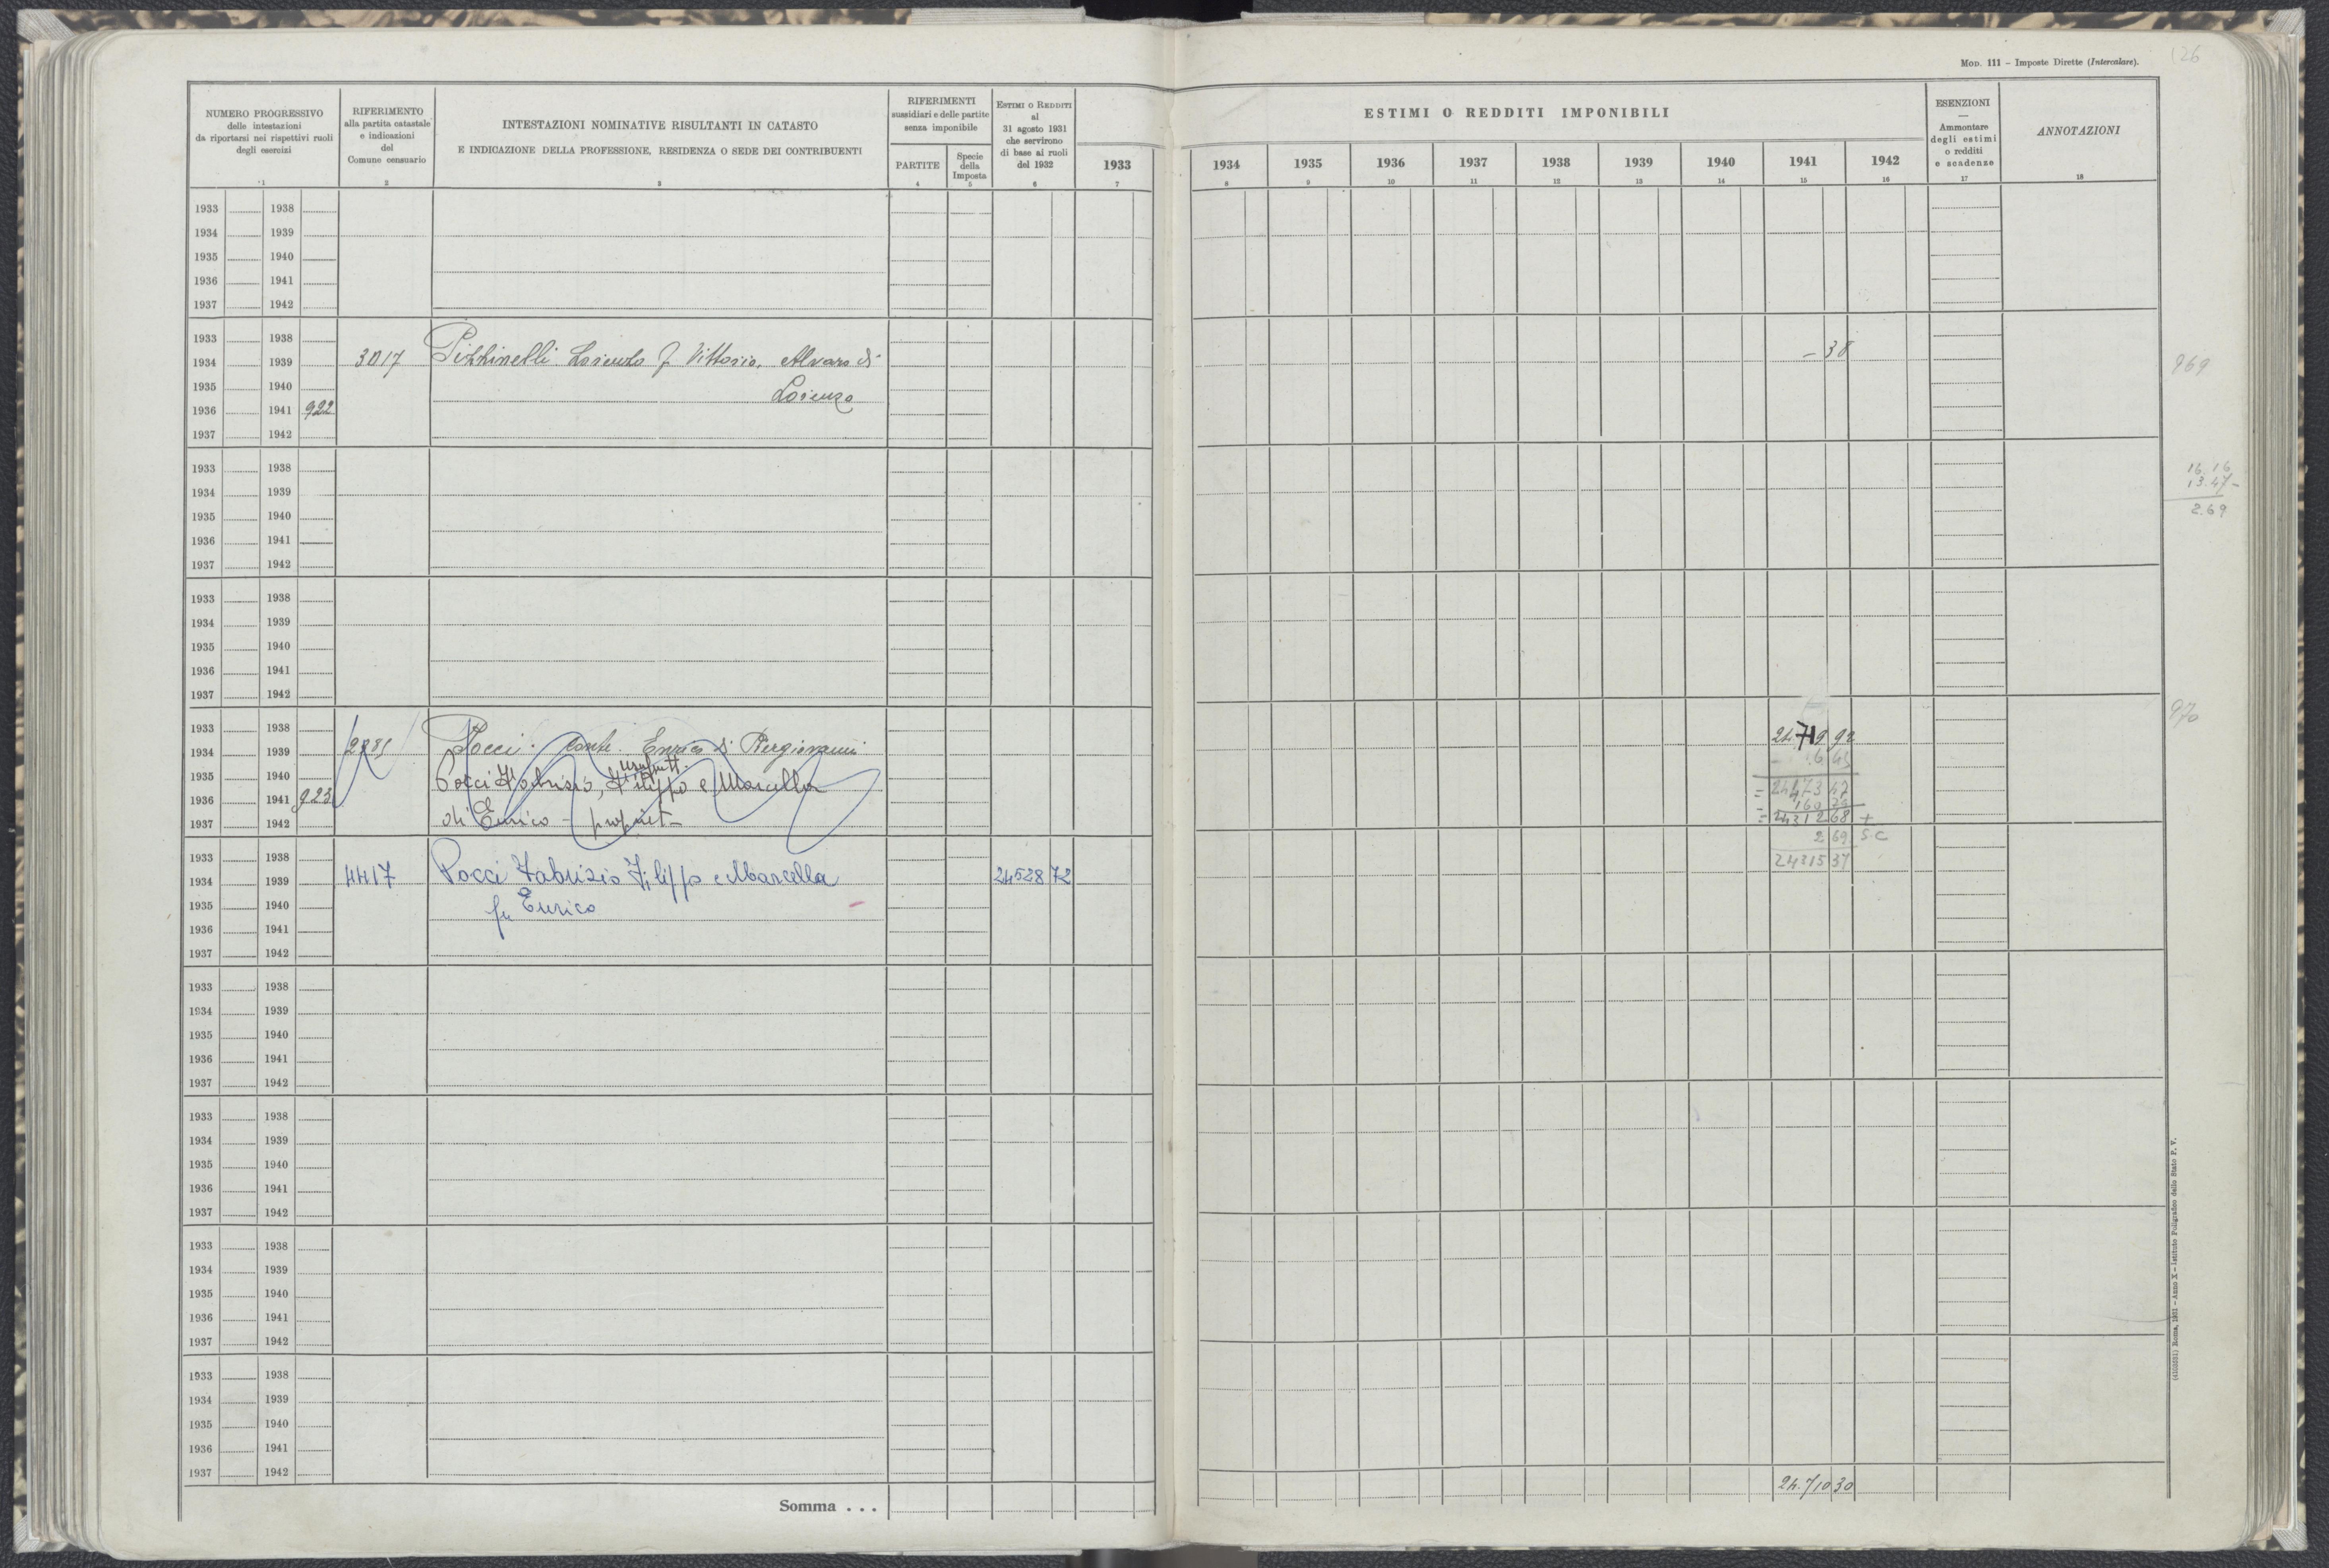 126
MOD. 111 - Imposte Dirette (Intercalare).
NUMERO PROGRESSIVO
delle intestazioni
da riportarsi nei rispettivi ruoli
degli esercizi
1
RIFERIMENTO
alla partita catastale
e indicazioni
del
Comune censuario
2
INTESTAZIONI NOMINATIVE RISULTANTI IN CATASTO
E INDICAZIONE DELLA PROFESSIONE, RESIDENZA O SEDE DEI CONTRIBUENTI
3
RIFERIMENTI
sussidiari e delle partite
senza imponibile
PARTITE
4
Specie
della
Imposta
5
ESTIMI O REDDITI
al
31 agosto 1931
che servirono
di base ai ruoli
del 1932
6
ESTIMI O REDDITI IMPONIBILI
1933 1934 1935 1936 1937 1938 1939 1940 1941 1942
7 8 9 10 11 12 13 14 15 16
ESENZIONI
—
Ammontare
degli estimi
o redditi
e scadenze
17
ANNOTAZIONI
18
1933 1938
1934 1939
1935 1940
1936 1941
1937 1942
1933 1938
1934 1939 3017 Pizzinelli Lorenzo f Vittorio, Alvaro di – 38 969
1935 1940 Lorenzo
1936 1941 922
1937 1942
1933 1938 16.16
1934 1939 13.47 –
1935 1940 2.69
1936 1941
1937 1942
1933 1938
1934 1939
1935 1940
1936 1941
1937 1942
1933 1938 970
1934 1939 Pocci conte Enrico di Piergiovanni 92
usufrutt.
1935 1940 Pocci Fabrizio, Filippo e Marcella
1936 1941 923 = 24473 47
1937 1942 di Enrico – propriet – = 24312 68 +
1933 1938 2 69 S.C
24315 37
1934 1939 4417 Pocci Fabrizio Filippo e Marcella 24528 72
1935 1940 fu Enrico
1936 1941
1937 1942
1933 1938
1934 1939
1935 1940
1936 1941
1937 1942
1933 1938
1934 1939
1935 1940
1936 1941
1937 1942
1933 1938
1934 1939
1935 1940
1936 1941
1937 1942
1933 1938
1934 1939
1935 1940
1936 1941
1937 1942
Somma . . . 24.710 30
(4103531) Roma, 1931 - Anno X - Istituto Poligrafico dello Stato P. V.